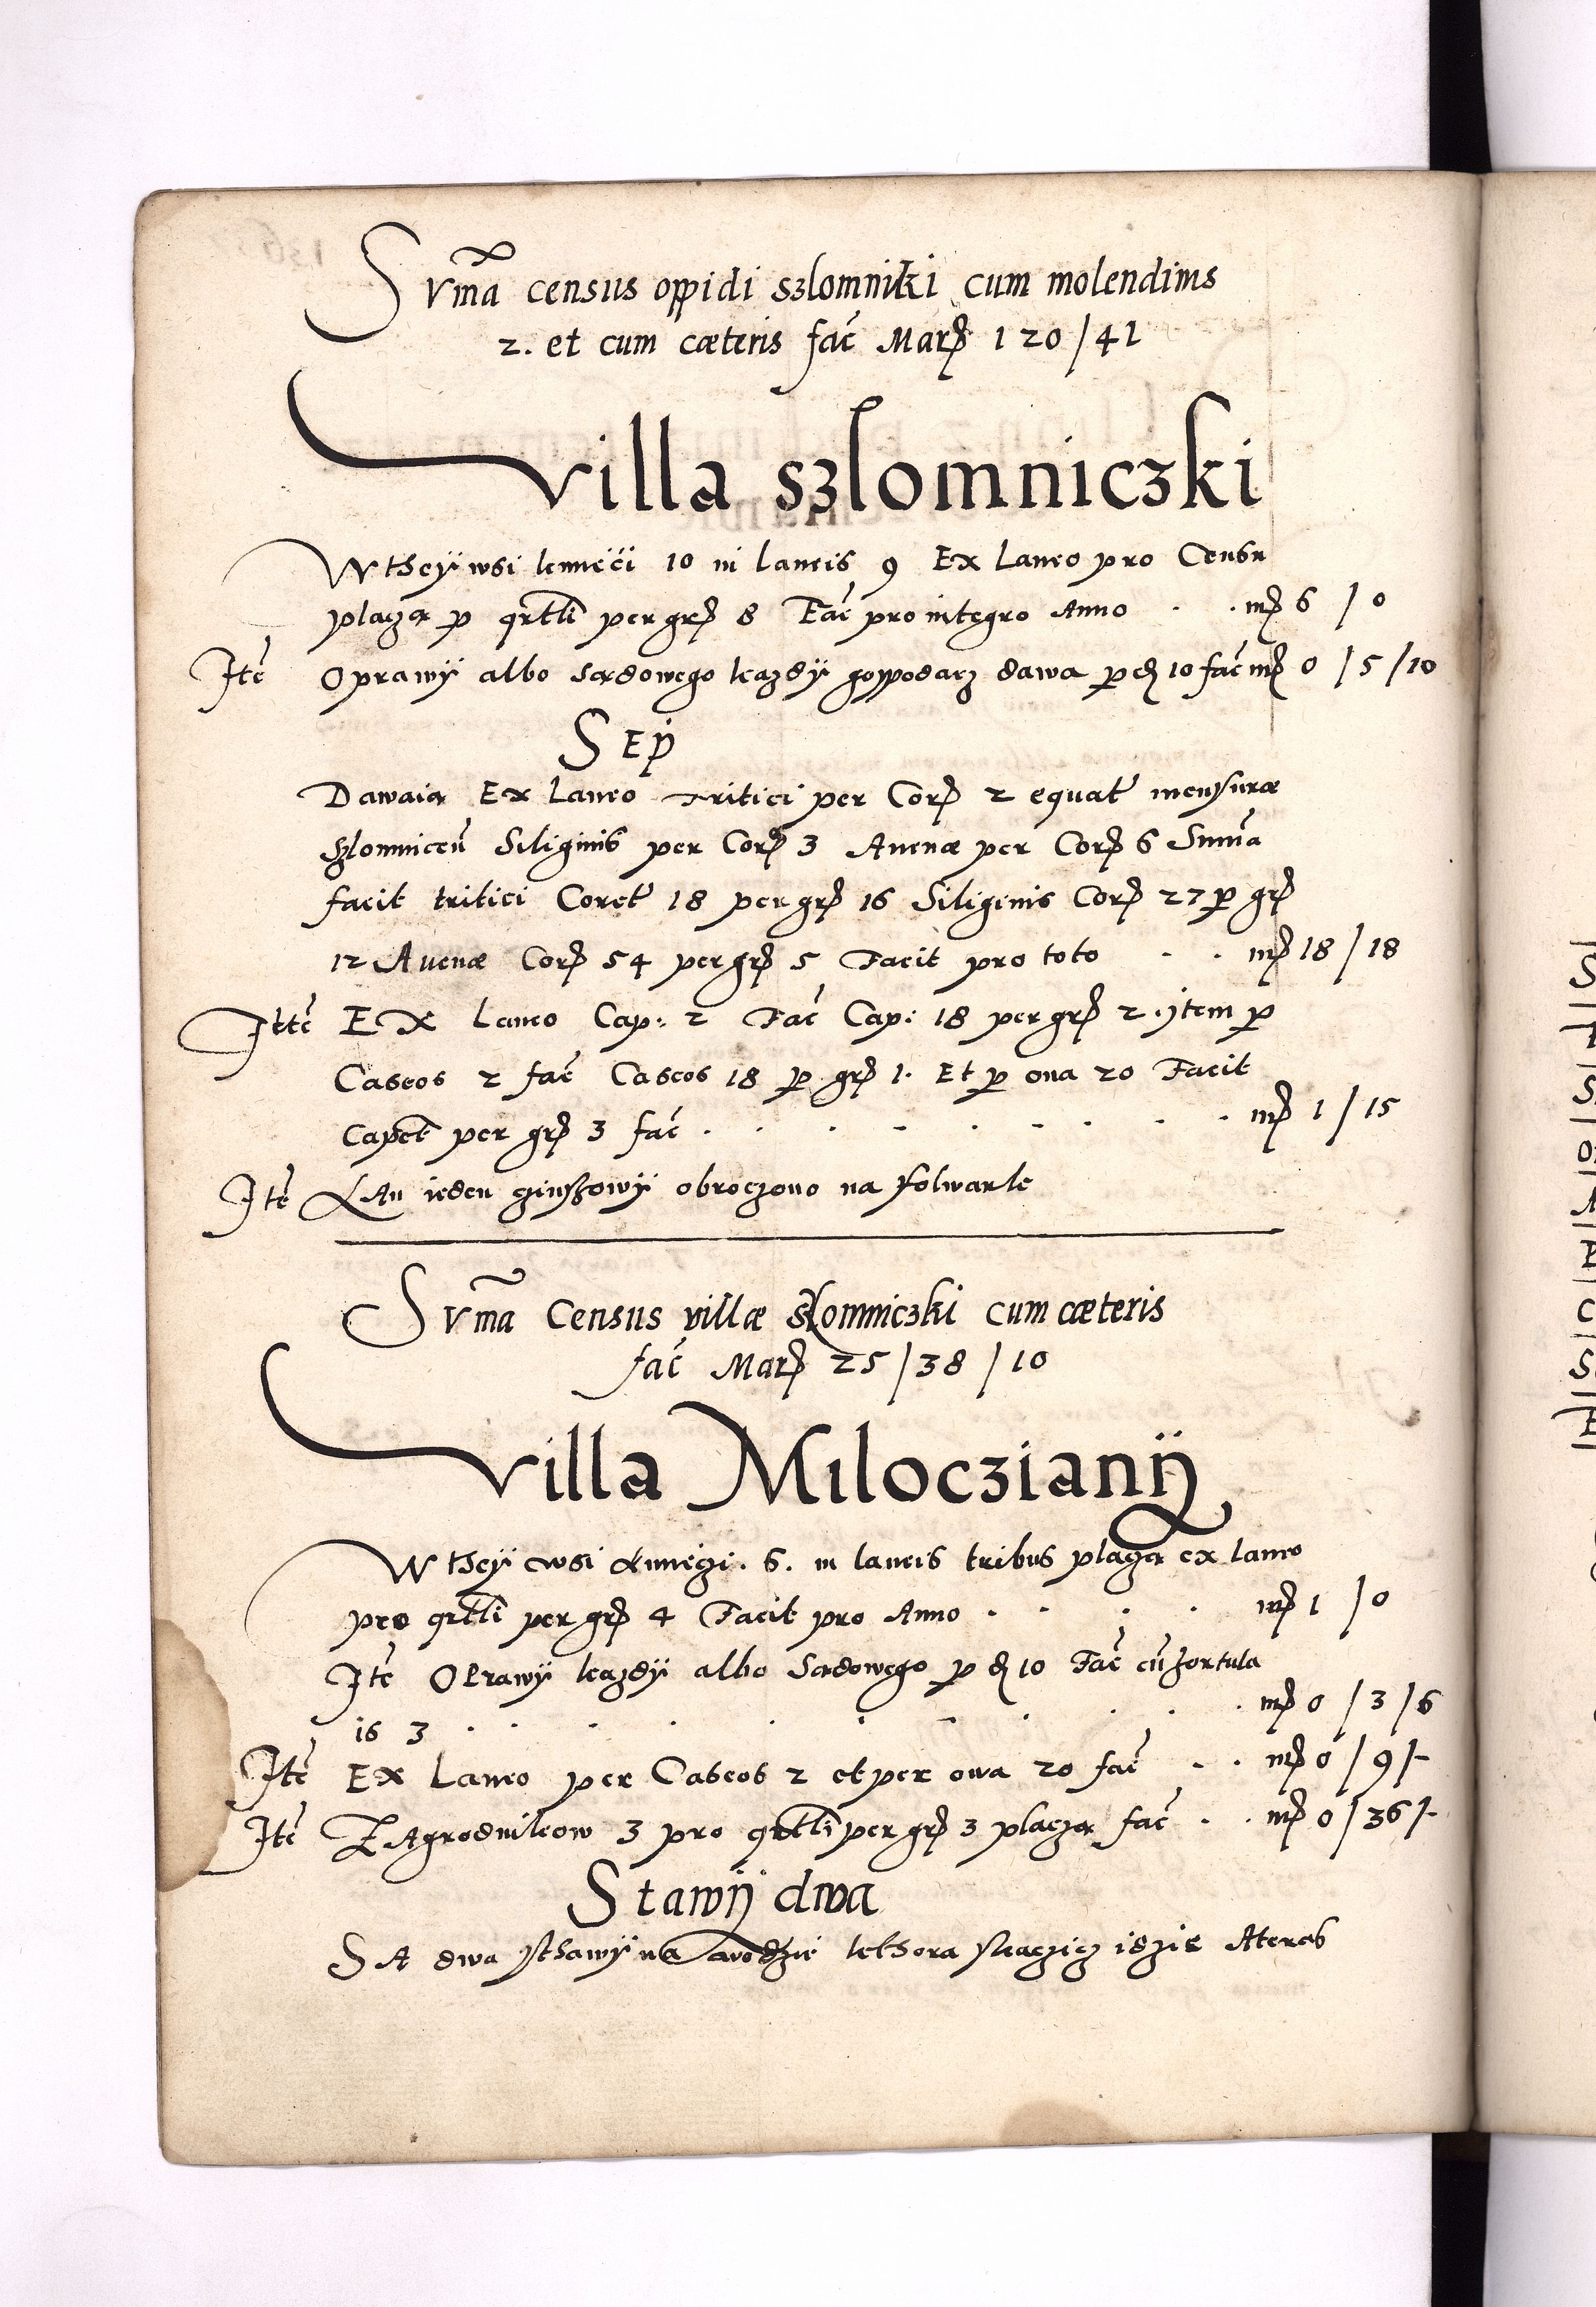 Sum̃a census oppidi szlomniki cum molendinis
2. et cum cæteris fac̃ Marꝭ 120/41
villa szlomniczki
W they wsi kmieci 10 in laneis 9 Ex Laneo pro Censu
placzą ꝑ qrtlĩ per grꝭ 8 Fac̃ pro integro Anno . . mꝭ 6 / 0
Itẽ Oprawÿ albo sądowego kazdÿ gospodarz dawa ꝑ đ 10 fac̃ mꝭ 0 / 5 / 10
SEP
Dawaią Ex Laneo Tritici per Corꝭ 2 equat̃ mensuræ
Szlomniceñ Siliginis per Corꝭ 3 Auenæ per Corꝭ 6 Sum̃a
facit tritici Coret̃ 18 per grꝭ 16 Siliginis Corꝭ 27 ꝑ grꝭ
12 Auenæ Corꝭ 54 per grꝭ 5 Facit pro toto . . mꝭ 18 / 18
Ittẽ EX Laneo Cap: 2 Fac̃ Cap: 18 per grꝭ 2 . ytem ꝑ
Caseos 2 fac̃ Caseos 18 ꝑ grꝭ 1. Et ꝑ oua 20 Facit
Capet̃ per grꝭ 3 fac̃ . . . . . . . . . mꝭ 1 / 15
Itẽ LAn ieden czinszowÿ obroczono na folwark
Sum̃a Census villæ slomniczki cum cæteris
fac̃ Marꝭ 25 / 38 / 10
villa Miloczianÿ
W theÿ wsi kmieczi . 6 . in laneis tribus placzą ex laneo
pro qrtlĩ per grꝭ 4 Facit pro Anno . . . . mꝭ 1 / 0
Itẽ OPrawÿ kazdÿ albo sądowego ꝑ đ 10 Fac̃ cũ hortula
is 3 . . . . . . . . . . mꝭ 0 / 3 / 6
Itẽ Ex Laneo per Caseos 2 et per owa 20 fac̃ . . mꝭ 0 / 9 / -
Itẽ ZAgrodnikow 3 pro qrtlĩ per grꝭ 3 placzą fac̃ . . mꝭ 0 / 36 / -
Stawÿ dwa
SA dwa sthawÿ na wodzie kthora